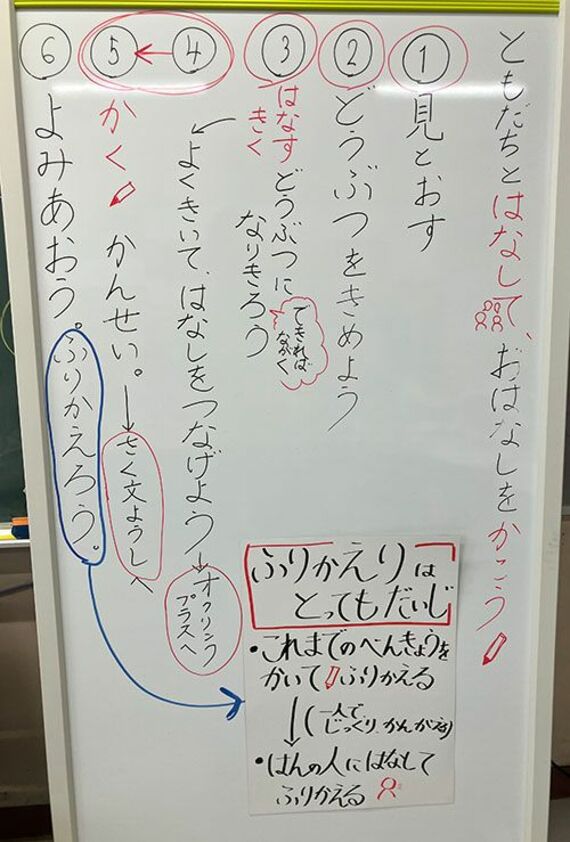 ともだちとはなして、おはなしをかこう
①見とおす
②どうぶつをきめよう
③はなす
きく
どうぶつに
なりきろう
できれば
ながく
④よくきいて、はなしをつなげよう→オクリンク
プラスへ
⑤かく かんせい。→さく文ようしへ
⑥よみあおう。ふりかえろう。
ふりかえりは
とってもだいじ
・これまでのべんきょうを
かいてふりかえる
↓(一人で
じっくりかんがえる)
・はんの人にはなして
ふりかえる